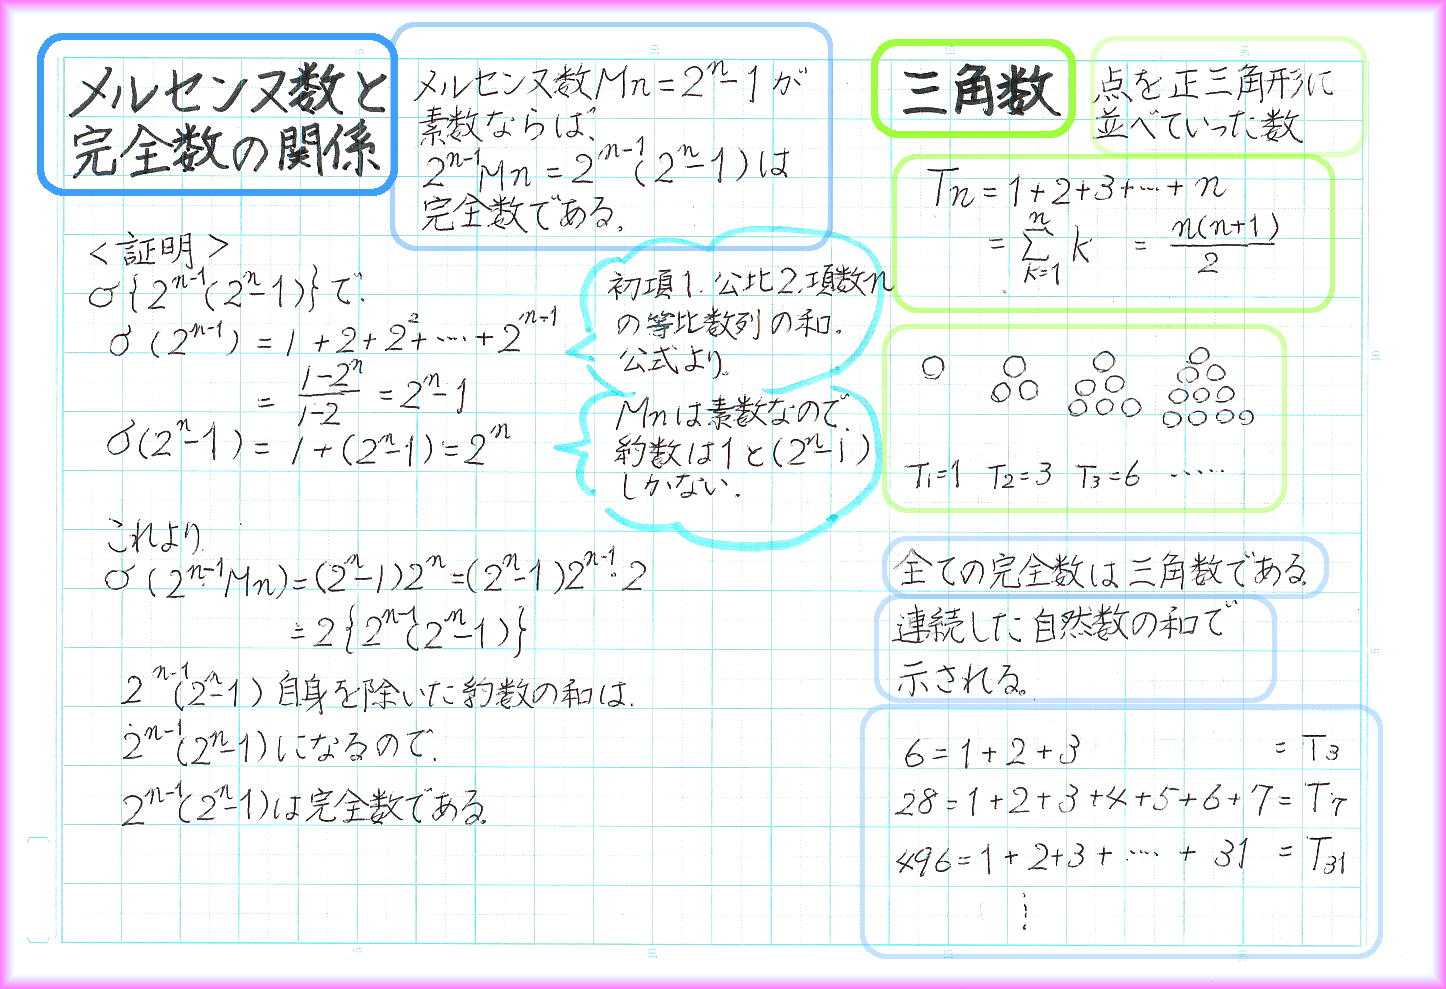 メルセンヌ数と
完全数の関係
メルセンヌ数Mn=2ⁿ-1が
素数ならば、
2ⁿ⁻¹Mn=2ⁿ⁻¹(2ⁿ-1)は
完全数である。
<証明>
σ{2ⁿ⁻¹(2ⁿ-1)}で、
σ(2ⁿ⁻¹)=1+2+2²+…+2ⁿ⁻¹
=(1-2ⁿ)/(1-2)=2ⁿ-1
σ(2ⁿ-1)=1+(2ⁿ-1)=2ⁿ
初項1.公比2.項数n
の等比数列の和.
公式より。
Mnは素数なので、
約数は1と(2ⁿ-1)
しかない.
これより
σ(2ⁿ⁻¹Mn)=(2ⁿ-1)2ⁿ=(2ⁿ-1)2ⁿ⁻¹·2
=2{2ⁿ⁻¹(2ⁿ-1)}
2ⁿ⁻¹(2ⁿ-1)自身を除いた約数の和は.
2ⁿ⁻¹(2ⁿ-1)になるので.
2ⁿ⁻¹(2ⁿ-1)は完全数である。
三角数
点を正三角形に
並べていった数
Tn=1+2+3+…+n
=∑ⁿₖ₌₁k=n(n+1)/2
T₁=1 T₂=3 T₃=6 ……
全ての完全数は三角数である。
連続した自然数の和で
示される。
6=1+2+3 =T₃
28=1+2+3+4+5+6+7=T₇
496=1+2+3+…+31 =T₃₁
⋮